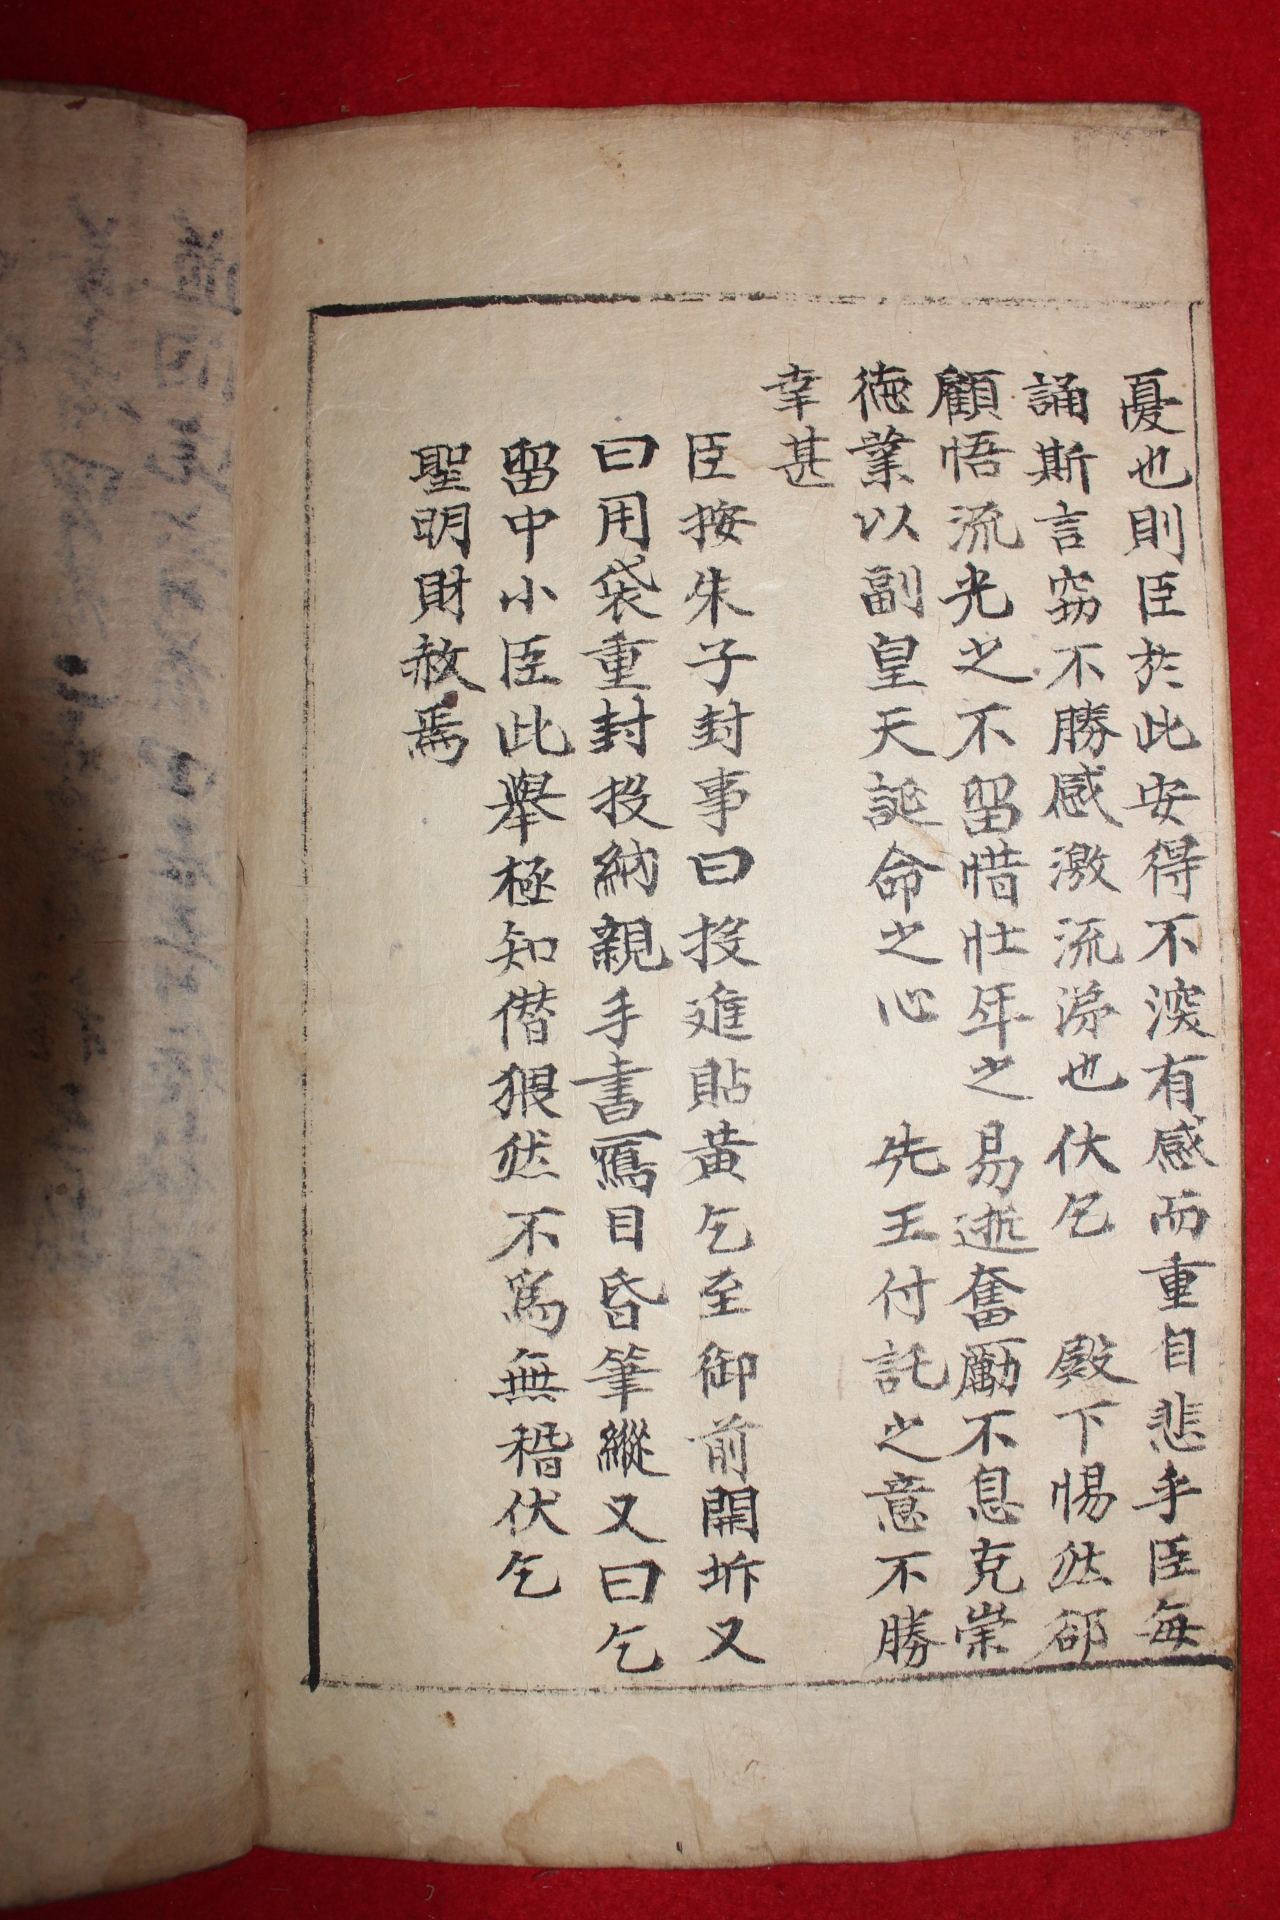 憂也則臣於此安得不深有感而重自悲乎臣每
誦斯言窃不勝感激流涕也伏乞 殿下惕然郤
顧悟流光之不留惜壯年之易逝奮勵不息克崇
德業以副皇天誕命之心 先王付託之意不勝
幸甚
臣按朱子封事曰投進貼黃乞至御前開坼又
曰用袋重封投納親手書寫目昏筆縱又曰乞
留中小臣此擧極知僭猥然不爲無稽伏乞
聖明財赦焉